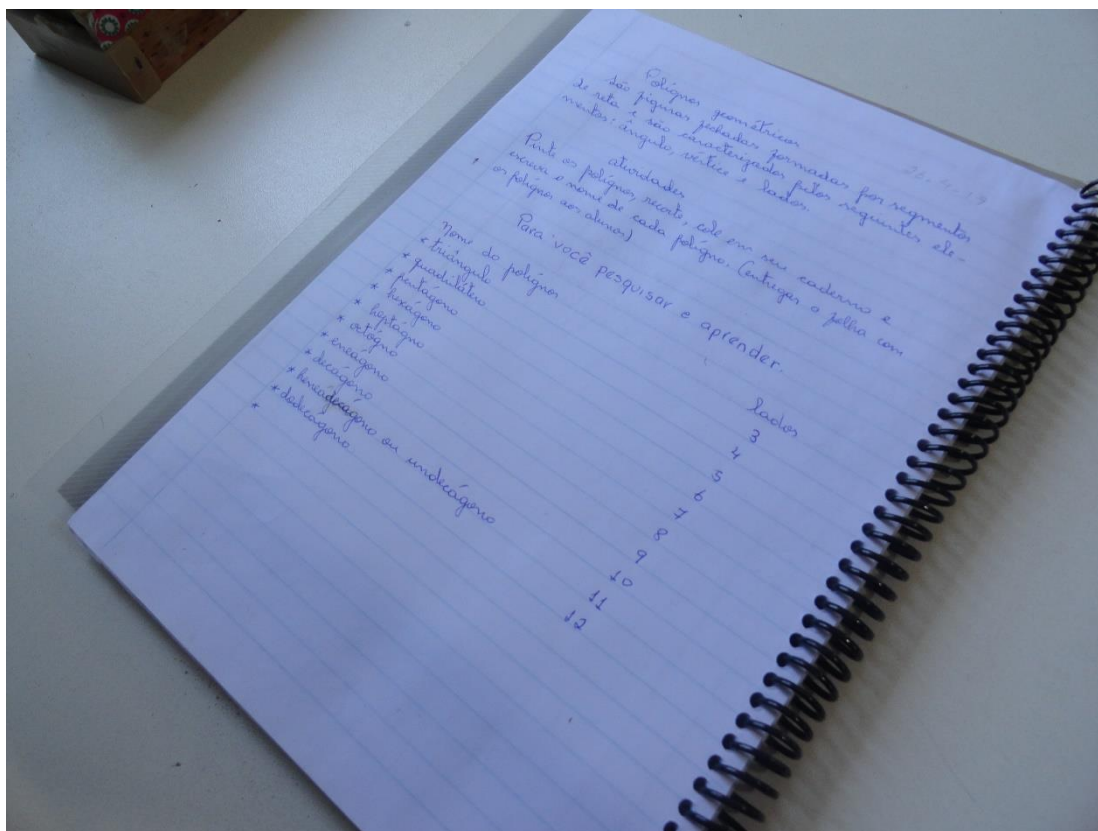 Polígnos geométricos
São figuras fechadas formadas por segmentos
de reta e são caracterizados pelos seguintes ele-
mentos: ângulo, vértice e lados.
atividades
Pinte os polígnos, recorte, cole em seu caderno e
escreva o nome de cada polígno. (entregar a folha com
os polígnos aos alunos)
Para você pesquisar e aprender.
Nome do polígnos lados
* triângulo 3
* quadrilátero 4
* pentágono 5
* hexágono 6
* heptágno 7
* octógno 8
* eneágono 9
* decágono 10
* ou undecágono 11
* dodecágono 12
*